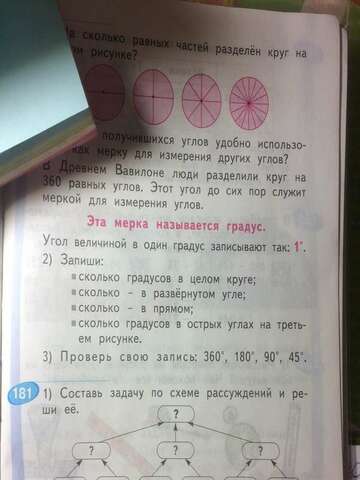 сколько равных частей разделён круг на
рисунке?
получившихся углов удобно использо-
как мерку для измерения других углов?
В Древнем Вавилоне люди разделили круг на
360 равных углов. Этот угол до сих пор служит
меркой для измерения углов.
Эта мерка называется градус.
Угол величиной в один градус записывают так: 1°.
2) Запиши:
■ сколько градусов в целом круге;
■ сколько – в развёрнутом угле;
■ сколько – в прямом;
■ сколько градусов в острых углах на треть-
ем рисунке.
3) Проверь свою запись: 360°, 180°, 90°, 45°.
181 1) Составь задачу по схеме рассуждений и ре-
ши её.
?
? ? ?